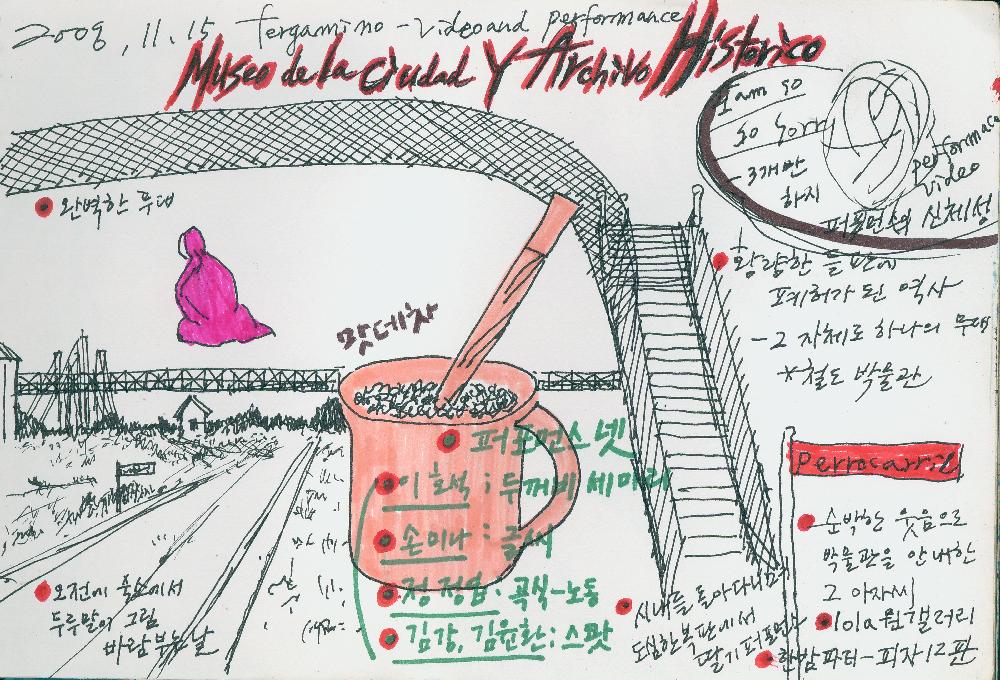 2008, 11. 15 Fergamino - video and performance
Museo de la Ciudad Y Archivo Historico
I am so
so sorry
- 3개만
하지
performance
video
퍼포먼스의 신체성
완벽한 무대
황량한 들판에
폐허가 된 역사
- 그 자체로 하나의 무대
*철도 박물관
맛데차
퍼포먼스 넷
이호석 ; 두꺼비 세마리
손미나 : 글씨
정정엽. 곡식-노동
김강, 김윤환 ; 스팟
Perrocarril
순박한 웃음으로
박물관을 안내한
그 아저씨
1010a 웜 갤러리
한밤파티 - 피자 12판
오전에 숙소에서
두루말이 그림
바람부는 날
시내를 돌아다니며
도심한복판에서
딸기 퍼포먼스